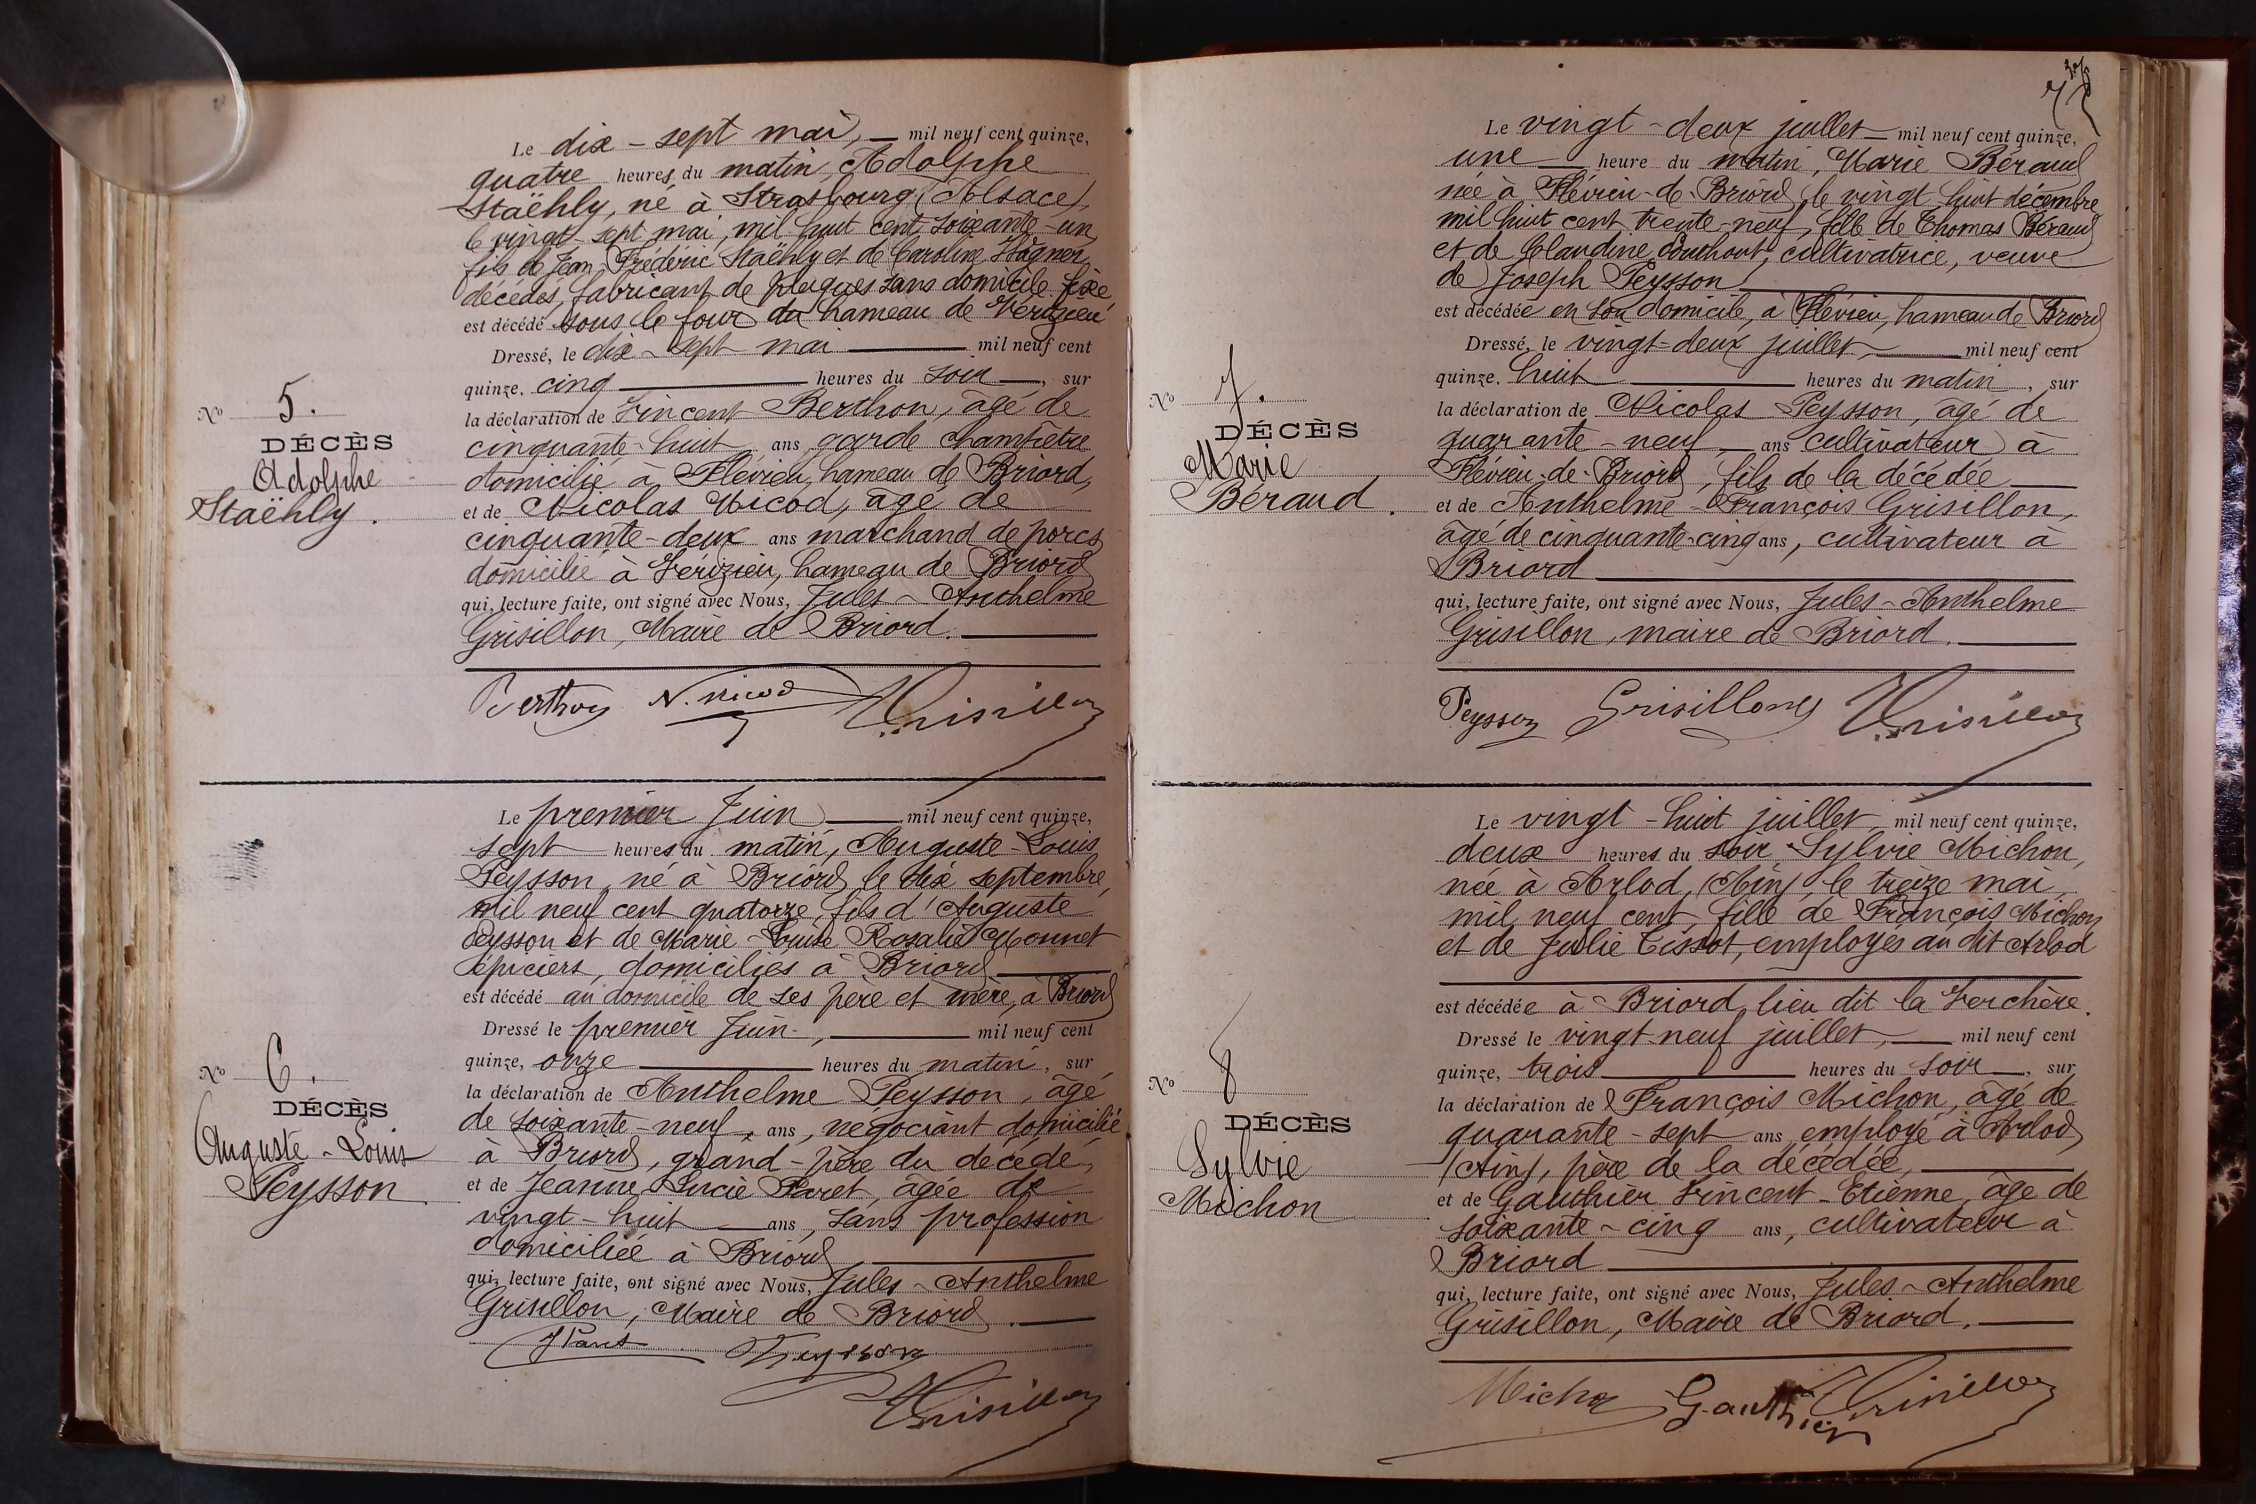 Le dix-sept mai, mil neuf cent quinze,
quatre heures du matin, Adolphe
Staëhly, né à Strasbourg (Alsace),
le vingt-sept mai, mil huit cent soixante-un,
fils de Jean-Frédéric Staëhly et de Caroline Wagner,
décédés, fabricant de plaques sans domicile fixe,
est décédé sous le four du hameau de Vérizieu
Dressé, le dix-sept mai mil neuf cent
quinze, cinq heures du soir, sur
la déclaration de Vincent Berthon, âgé de
cinquante-huit ans, garde champêtre
domicilié à Flévieu, hameau de Briord,
et de Nicolas Nicod, âgé de
cinquante-deux ans marchand de porcs
domicilié à Vérizieu, hameau de Briord
qui, lecture faite, ont signé avec Nous, Jules-Anthelme
Grisillon, Maire de Briord.
Berthon N. nicod Grisillon
No 5.
DÉCÈS
Adolphe
Staëhly.
Le premier Juin mil neuf cent quinze,
sept heures du matin, Auguste-Louis
Peysson, né à Briord le dix septembre,
mil neuf cent quatorze, fils d'Auguste
Peysson et de Marie-Louise Rosalie Monnet
épiciers, domiciliés à Briord
est décédé au domicile de ses père et mère, à Briord
Dressé le premier Juin, mil neuf cent
quinze, onze heures du matin, sur
la déclaration de Anthelme Peysson, âgé
de soixante-neuf, ans, négociant domicilié
à Briord, grand-père du décédé,
et de Jeanne Lucie Paret, âgée de
vingt-huit ans, sans profession
domiciliée à Briord
qui, lecture faite, ont signé avec Nous, Jules-Anthelme
Grisillon, Maire de Briord.
J Paret Peysson
Grisillon
No 6.
DÉCÈS
Auguste-Louis
Peysson
Le vingt-deux juillet mil neuf cent quinze,
une heure du matin, Marie Béraud
née à Flévieu-de-Briord, le vingt huit décembre
mil huit cent trente-neuf, fille de Thomas Béraud
et de Claudine, cultivatrice, veuve
de Joseph Peysson
est décédée en son domicile, à Flévieu, hameau de Briord
Dressé, le vingt-deux juillet, mil neuf cent
quinze, huit heures du matin, sur
la déclaration de Nicolas Peysson, âgé de
quarante-neuf ans cultivateur à
Flévieu-de-Briord, fils de la décédée
et de Anthelme-François Grisillon,
âgé de cinquante-cinq ans, cultivateur à
Briord
qui, lecture faite, ont signé avec Nous, Jules-Anthelme
Grisillon, maire de Briord.
Peysson Grisillon Grisillon
No 7.
DÉCÈS
Marie
Béraud.
Le vingt-huit juillet mil neuf cent quinze,
deux heures du soir, Sylvie Michon,
née à Arlod, (Ain), le treize mai,
mil neuf cent, fille de François Michon
et de Julie Tissot, employés au dit Arlod
est décédée à Briord, lieu dit la Verchère.
Dressé le vingt-neuf juillet, mil neuf cent
quinze, trois heures du soir, sur
la déclaration de François Michon, âgé de
quarante-sept ans employé à Arlod
(Ain), père de la décédée,
et de Gauthier Vincent-Etienne, âgé de
soixante-cinq ans, cultivateur à
Briord
qui, lecture faite, ont signé avec Nous, Jules-Anthelme
Grisillon, Maire de Briord.
Michon Gauthier Grisillon
No 8
DÉCÈS
Sylvie
Michon